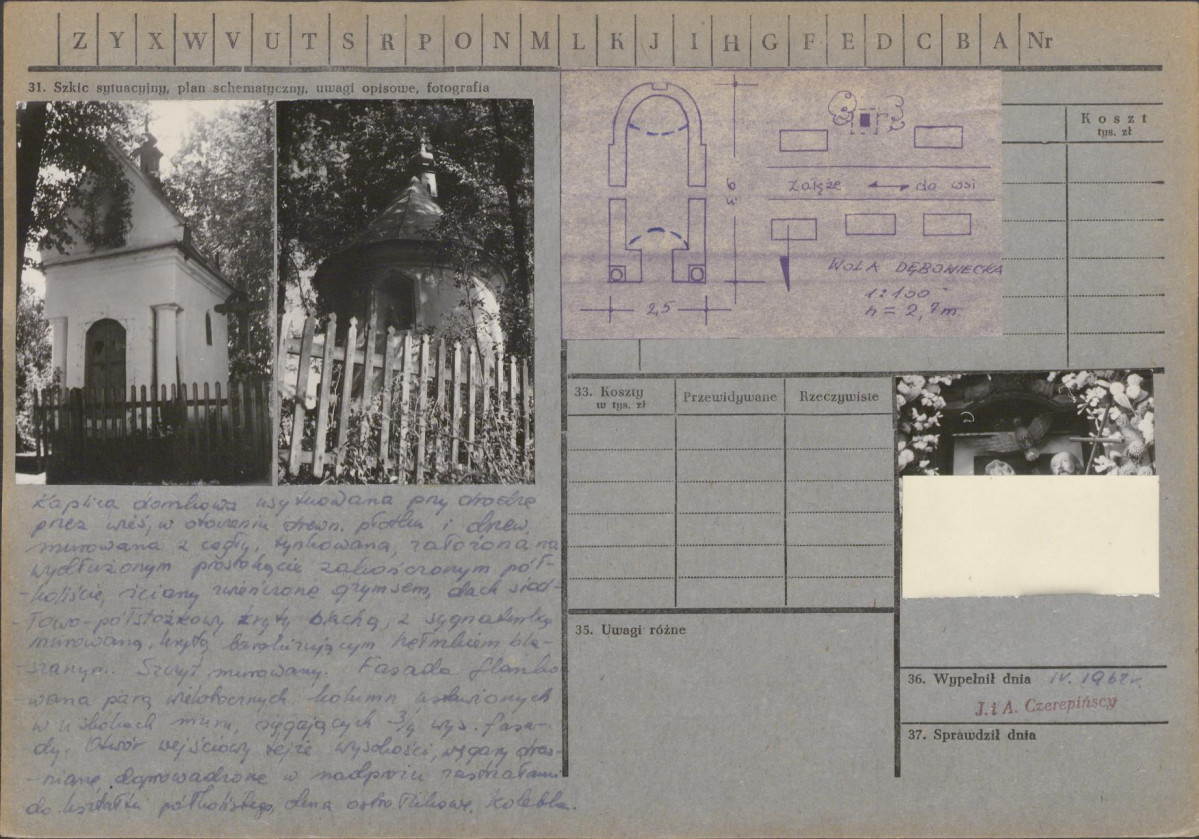 Z Y X W V U T S R P O N M L K J I H G F E D C B A Nr
31. Szkic sytuacyjny, plan schematyczny, uwagi opisowe, fotografia
Koszt
tys. zł
Załęże ⟷ do wsi
WOLA DĘBOWIECKA
1:100
h = 2,7 m.
2,5
Kaplica domkowa usytuowana przy drodze
przez wieś, w otoczeniu drewn. płotku i drzew,
murowana z cegły, tynkowana, założona na
wydłużonym prostokącie zakończonym pół-
-koliście, ściany zwieńczone gzymsem, dach siod-
-łowo-półstożkowy kryty blachą, z sygnaturką
murowaną, krytą barokizującym hełmkiem bla-
-szanym. Szczyt murowany. Fasada flanko
wana parą wielobocznych kolumn ustawionych
w uskokach muru, sięgających 3/4 wys. fasa-
dy. Otwór wejściowy tejże wysokości, węgary drew-
-niane, doprowadzone w nadprożu zastrzałami
do kształtu półkolistego, okna ostrołukowe. Kolebka.
33. Koszty
w tys. zł
Przewidywane
Rzeczywiste
35. Uwagi różne
36. Wypełnił dnia IV. 1967 r.
J. i A. Czerepińscy
37. Sprawdził dnia